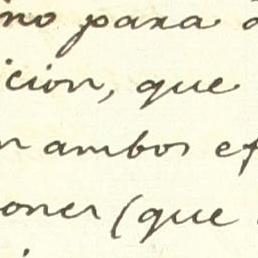 no para
icion, que
n ambos ef
ones (que